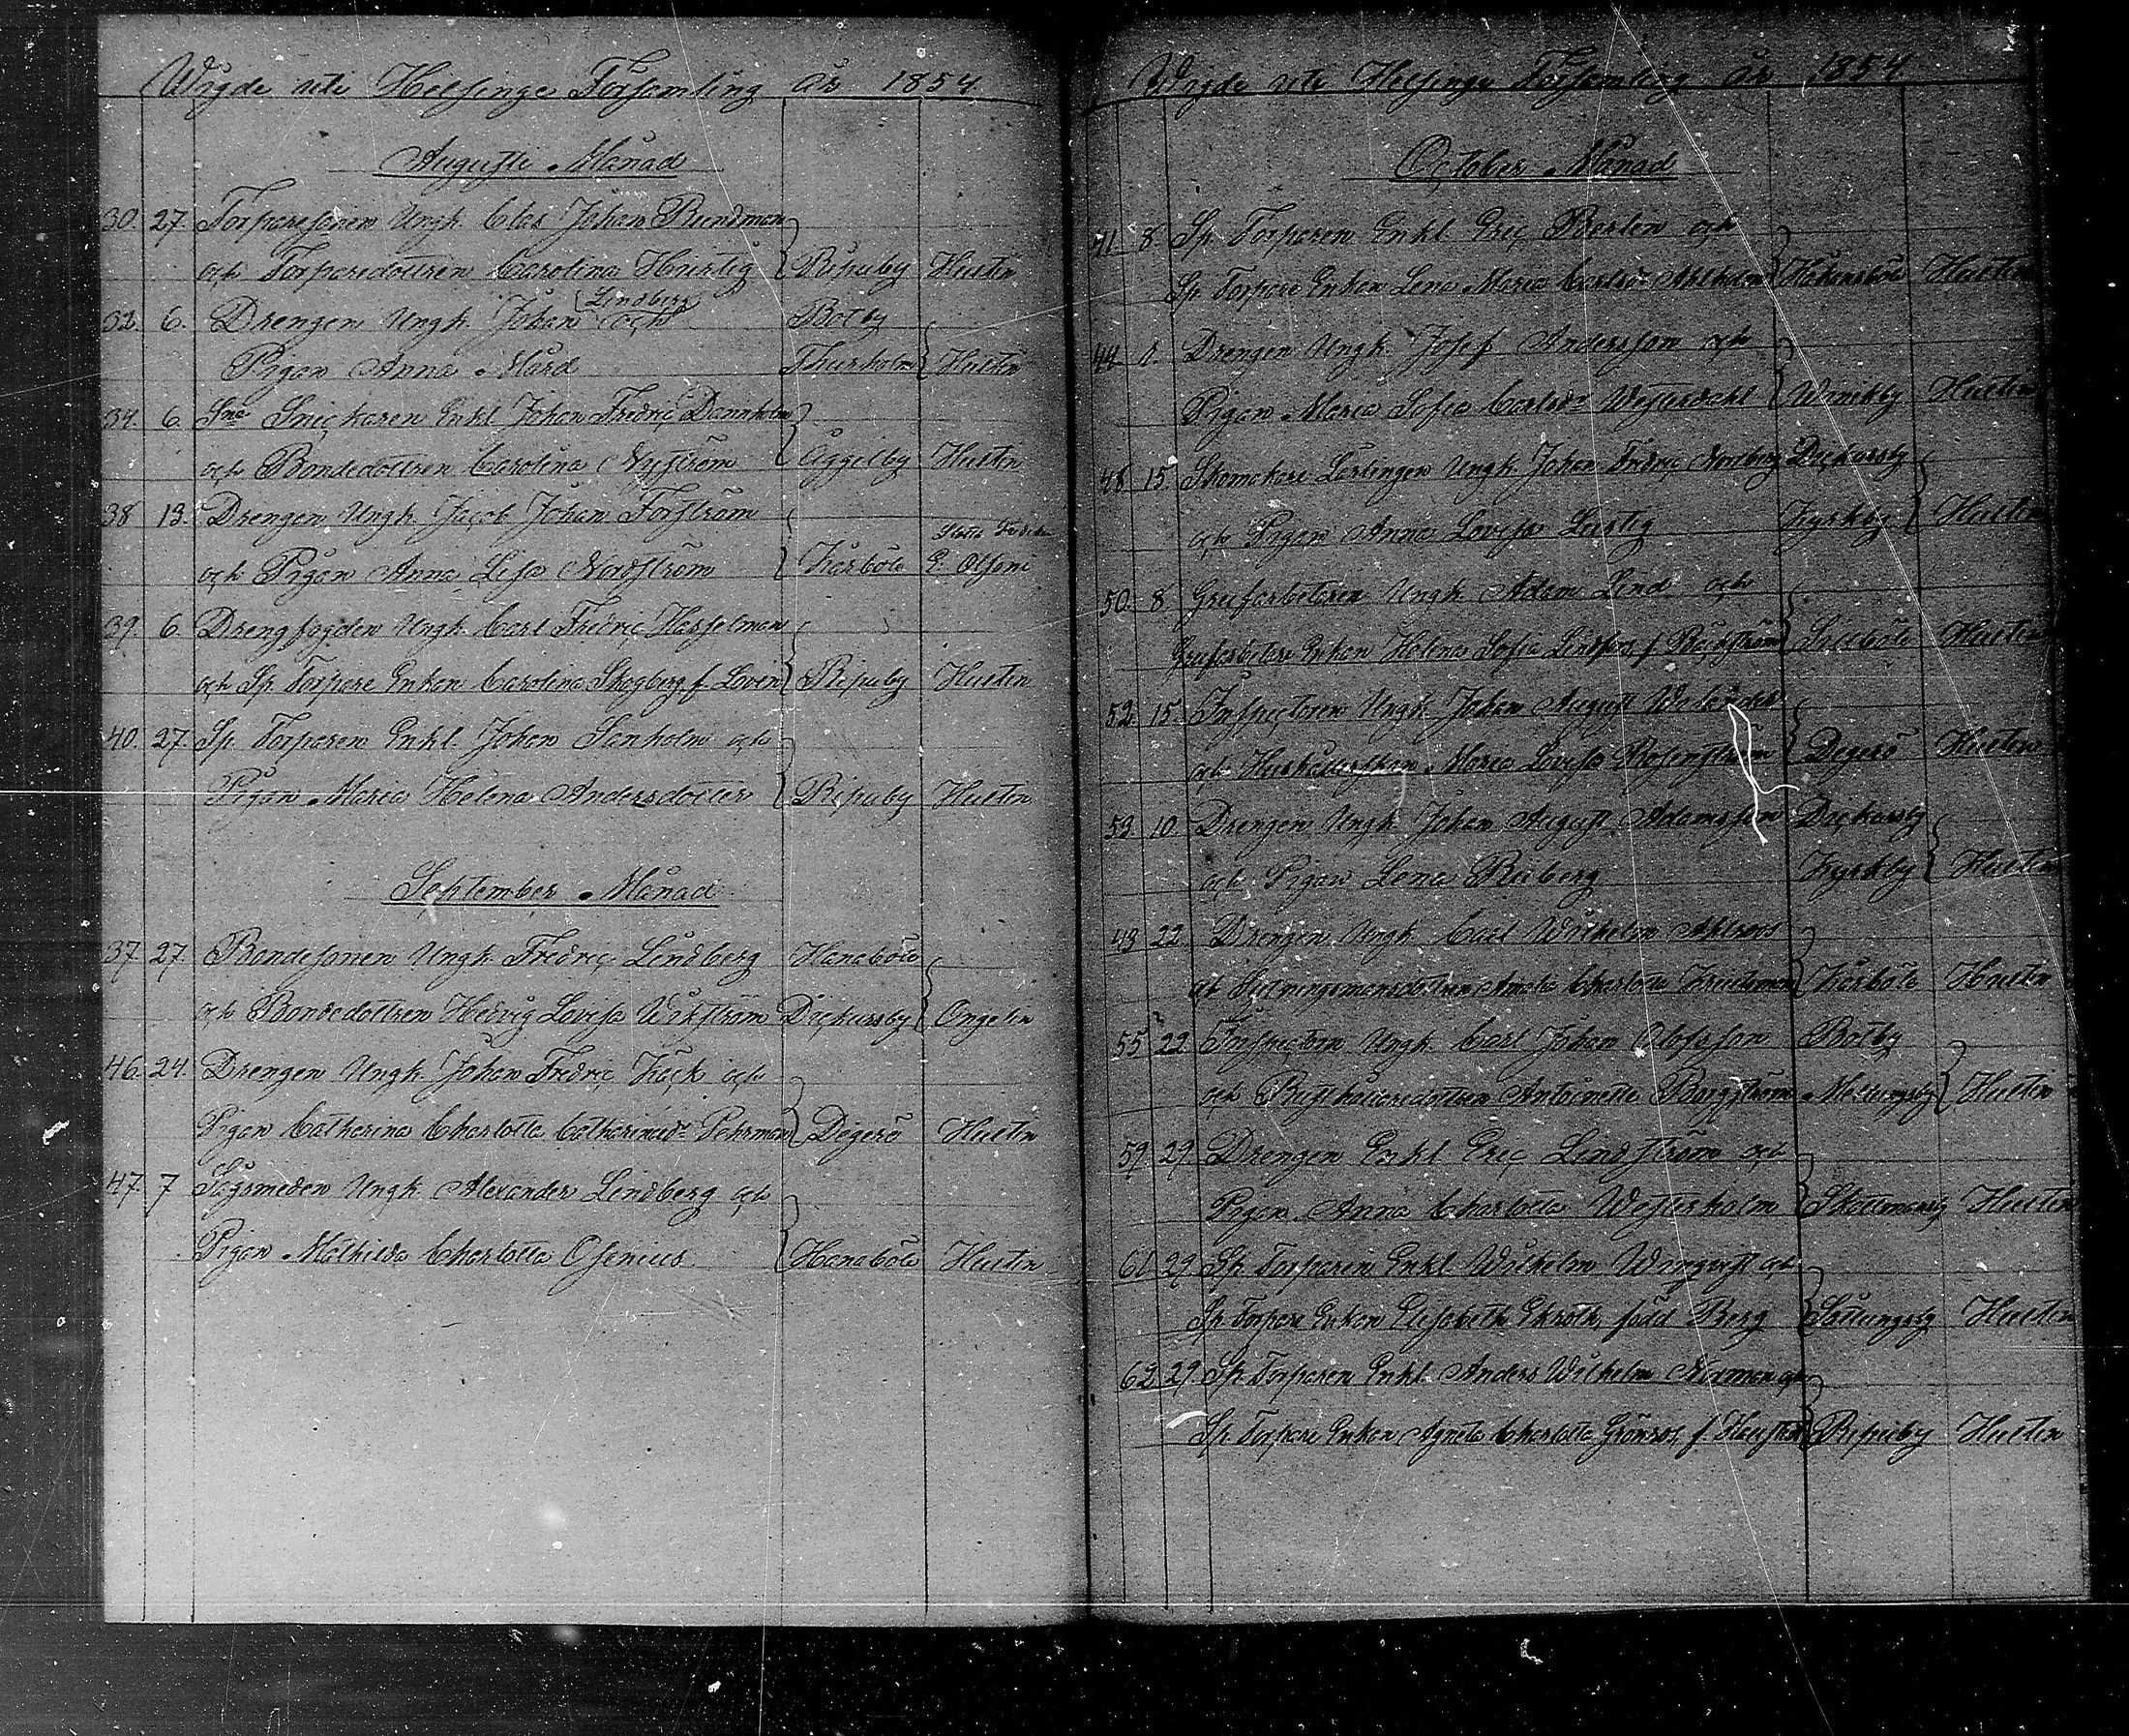 Wigde uti Helsinge Församling år 1854
Augusti Månad
30. 27. Torparesonen Ungk. Clas Johan Bundman
och Torparedottren Carolina Hurtig Ripuby Hultin
32. 6. Drengen Ungk. Johan Lindberg och Botby
Pigan Anna Mård Thurholm Hultin
34. 6. Snickaren Enkl. Johan Fredric Dannholm
och Bondedottren Carolina Nyström Åggelby Hultin
38. 13. Drengen Ungk. Jacob Johan Forström
och Pigan Anna Lisa Nordström Kårböle E. Olsoni
39. 6. Drengfogden Ungk. Carl Fredric Hasselman
och Sp. Torpare Enkan Carolina Skogberg f. Lovin Ripuby Hultin
40. 27. Sp. Torparen Enkl. Johan Sanholm och
Pigan Maria Helena Andersdotter Ripuby Hultin
September Månad
37. 27. Bondesonen Ungk. Fredric Lindberg Hanaböle
och Bondedottren Hedvig Lovisa Wikström Dickursby Ongelin
46. 24. Drengen Ungk. Johan Fredric Kack och
Pigan Catharina Charlotta Catharinadr Pehrman Degerö Hultin
47. 7 Sågsmeden Ungk. Alexander Lindberg och
Pigan Mathilda Charlotta Osenius Hanaböle Hultin
Wigde uti Helsinge Församling år 1854
October Månad
41. 8. Sp. Torparen Enkl. Eric Berlin och
Sp. Torpare Enkan Lena Maria Carlsdr Ahlholm Håkansböle Hultin
44. 1. Drengen Ungk. Josef Andersson och
Pigan Maria Sofia Carlsdr Westerdahl Winikby Hultin
48. 15. Skomakare Lärlingen Ungk. Johan Fredric Nordberg Dickursby
och Pigan Anna Lovisa Lustig Kyrkby Hultin
50. 8. Grufarbetaren Ungk. Adam Lind och
Grufarbetare Enkan Helena Sofia Lindfors f. Bäckström Hultin
52. 15. Inspectoren Ungk. Johan August
och Hushållerskan Maria Lovisa Rosenström Degerö Hultin
53. 10. Drengen Ungk. Johan August Adamsson Dickursby
och Pigan Lena Riiberg Kyrkby Hultin
43. 22. Drengen Ungk. Carl Wilhelm Ahlroos
och Amalia Charlotta Kårböle Hultin
55. 22. Inspectorn Ungk. Carl Johan Olofsson Botby
och Antoinette Bergström Mellungsby Hultin
59. 29. Drengen Enkl. Eric Lindström och
Pigan Anna Charlotta Westerholm Skattmansby Hultin
61. 29. Sp. Torparen Enkl. Wilhelm Wingqvist och
Sp. Torpare Enkan Elisabeth Ekroth, född Berg Sottungsby Hultin
62. 29. Sp. Torparen Enkl. Anders Wilhelm Norman och
Sp. Torpare Enkan Agneta Charlotta Grönroos, f. Ripuby Hultin